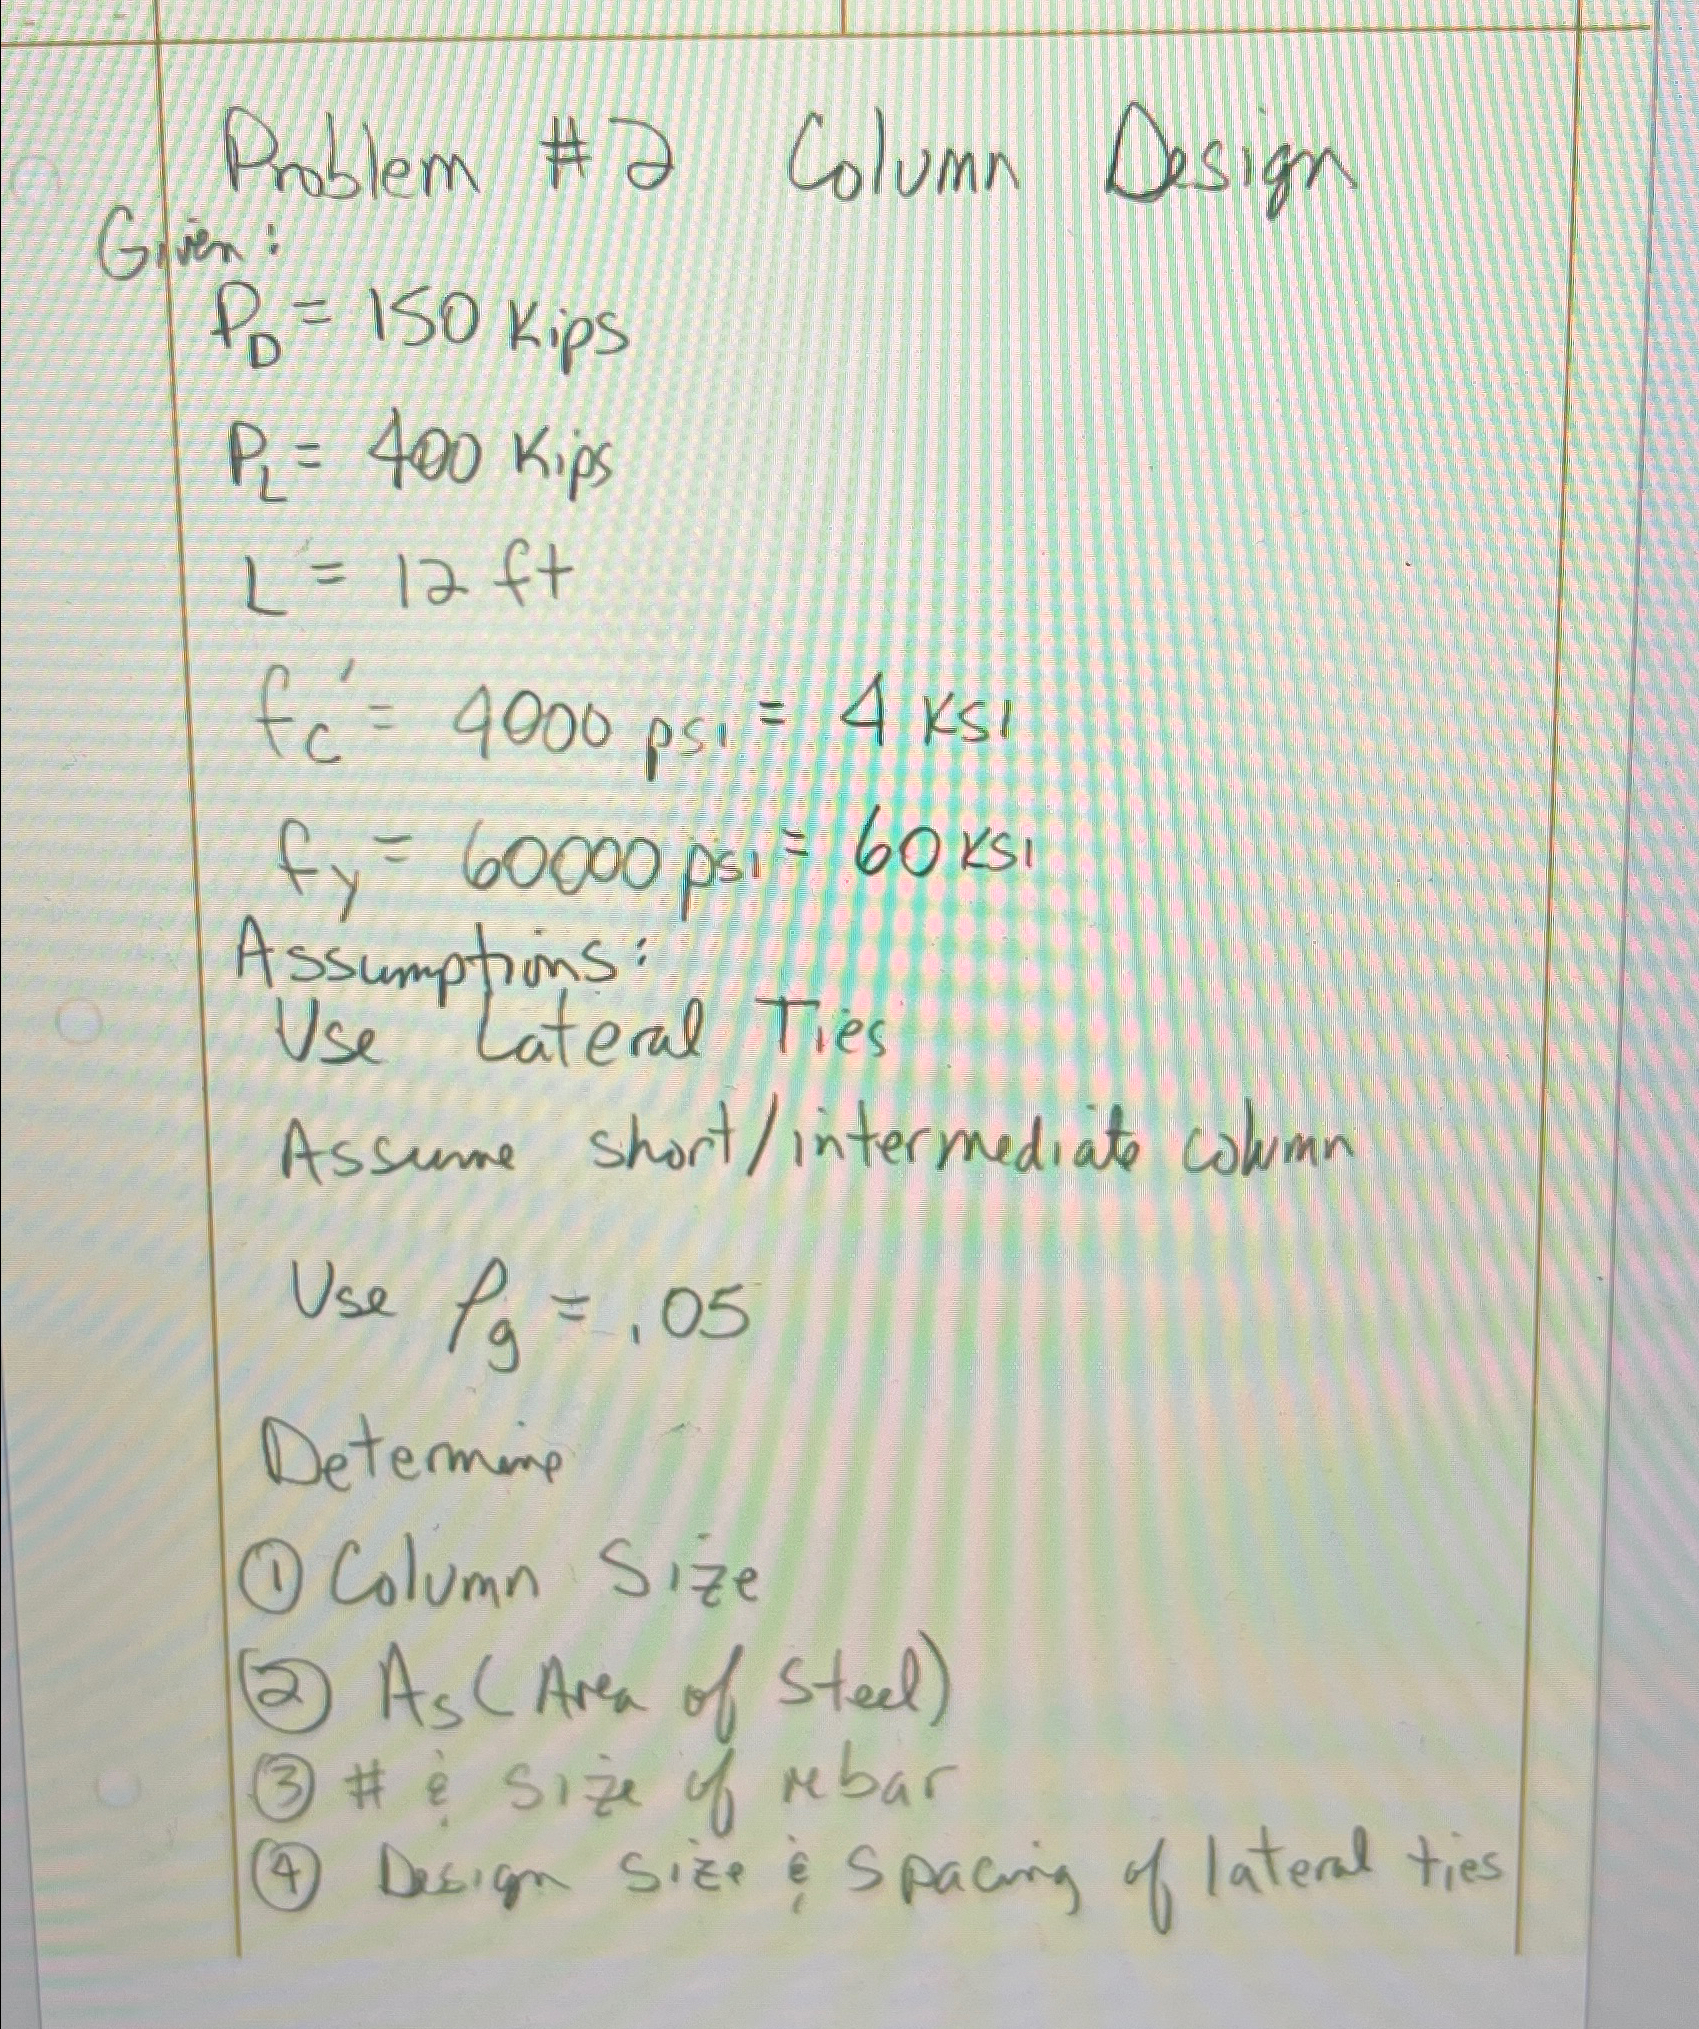 Problem #2 Column Design
Given:
P_D = 150 Kips
P_L = 400 Kips
L = 12 ft
fc' = 4000 psi = 4 ksi
fy = 60000 psi = 60 ksi
Assumptions:
Use Lateral Ties
Assume short/intermediate column
Use ρg = .05
Determine
① Column Size
② As (Area of Steel)
③ # & size of rebar
④ Design Size & Spacing of lateral ties